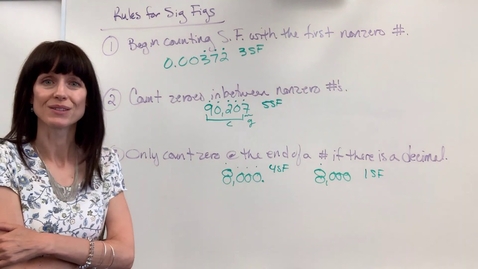 Rules for Sig Figs
① Begin counting S.F. with the first nonzero #.
0.00372 3SF
② Count zeroes in between nonzero #'s.
90,207 5SF
Only count zero @ the end of a # if there is a decimal.
8,000. 4SF 8,000 1SF